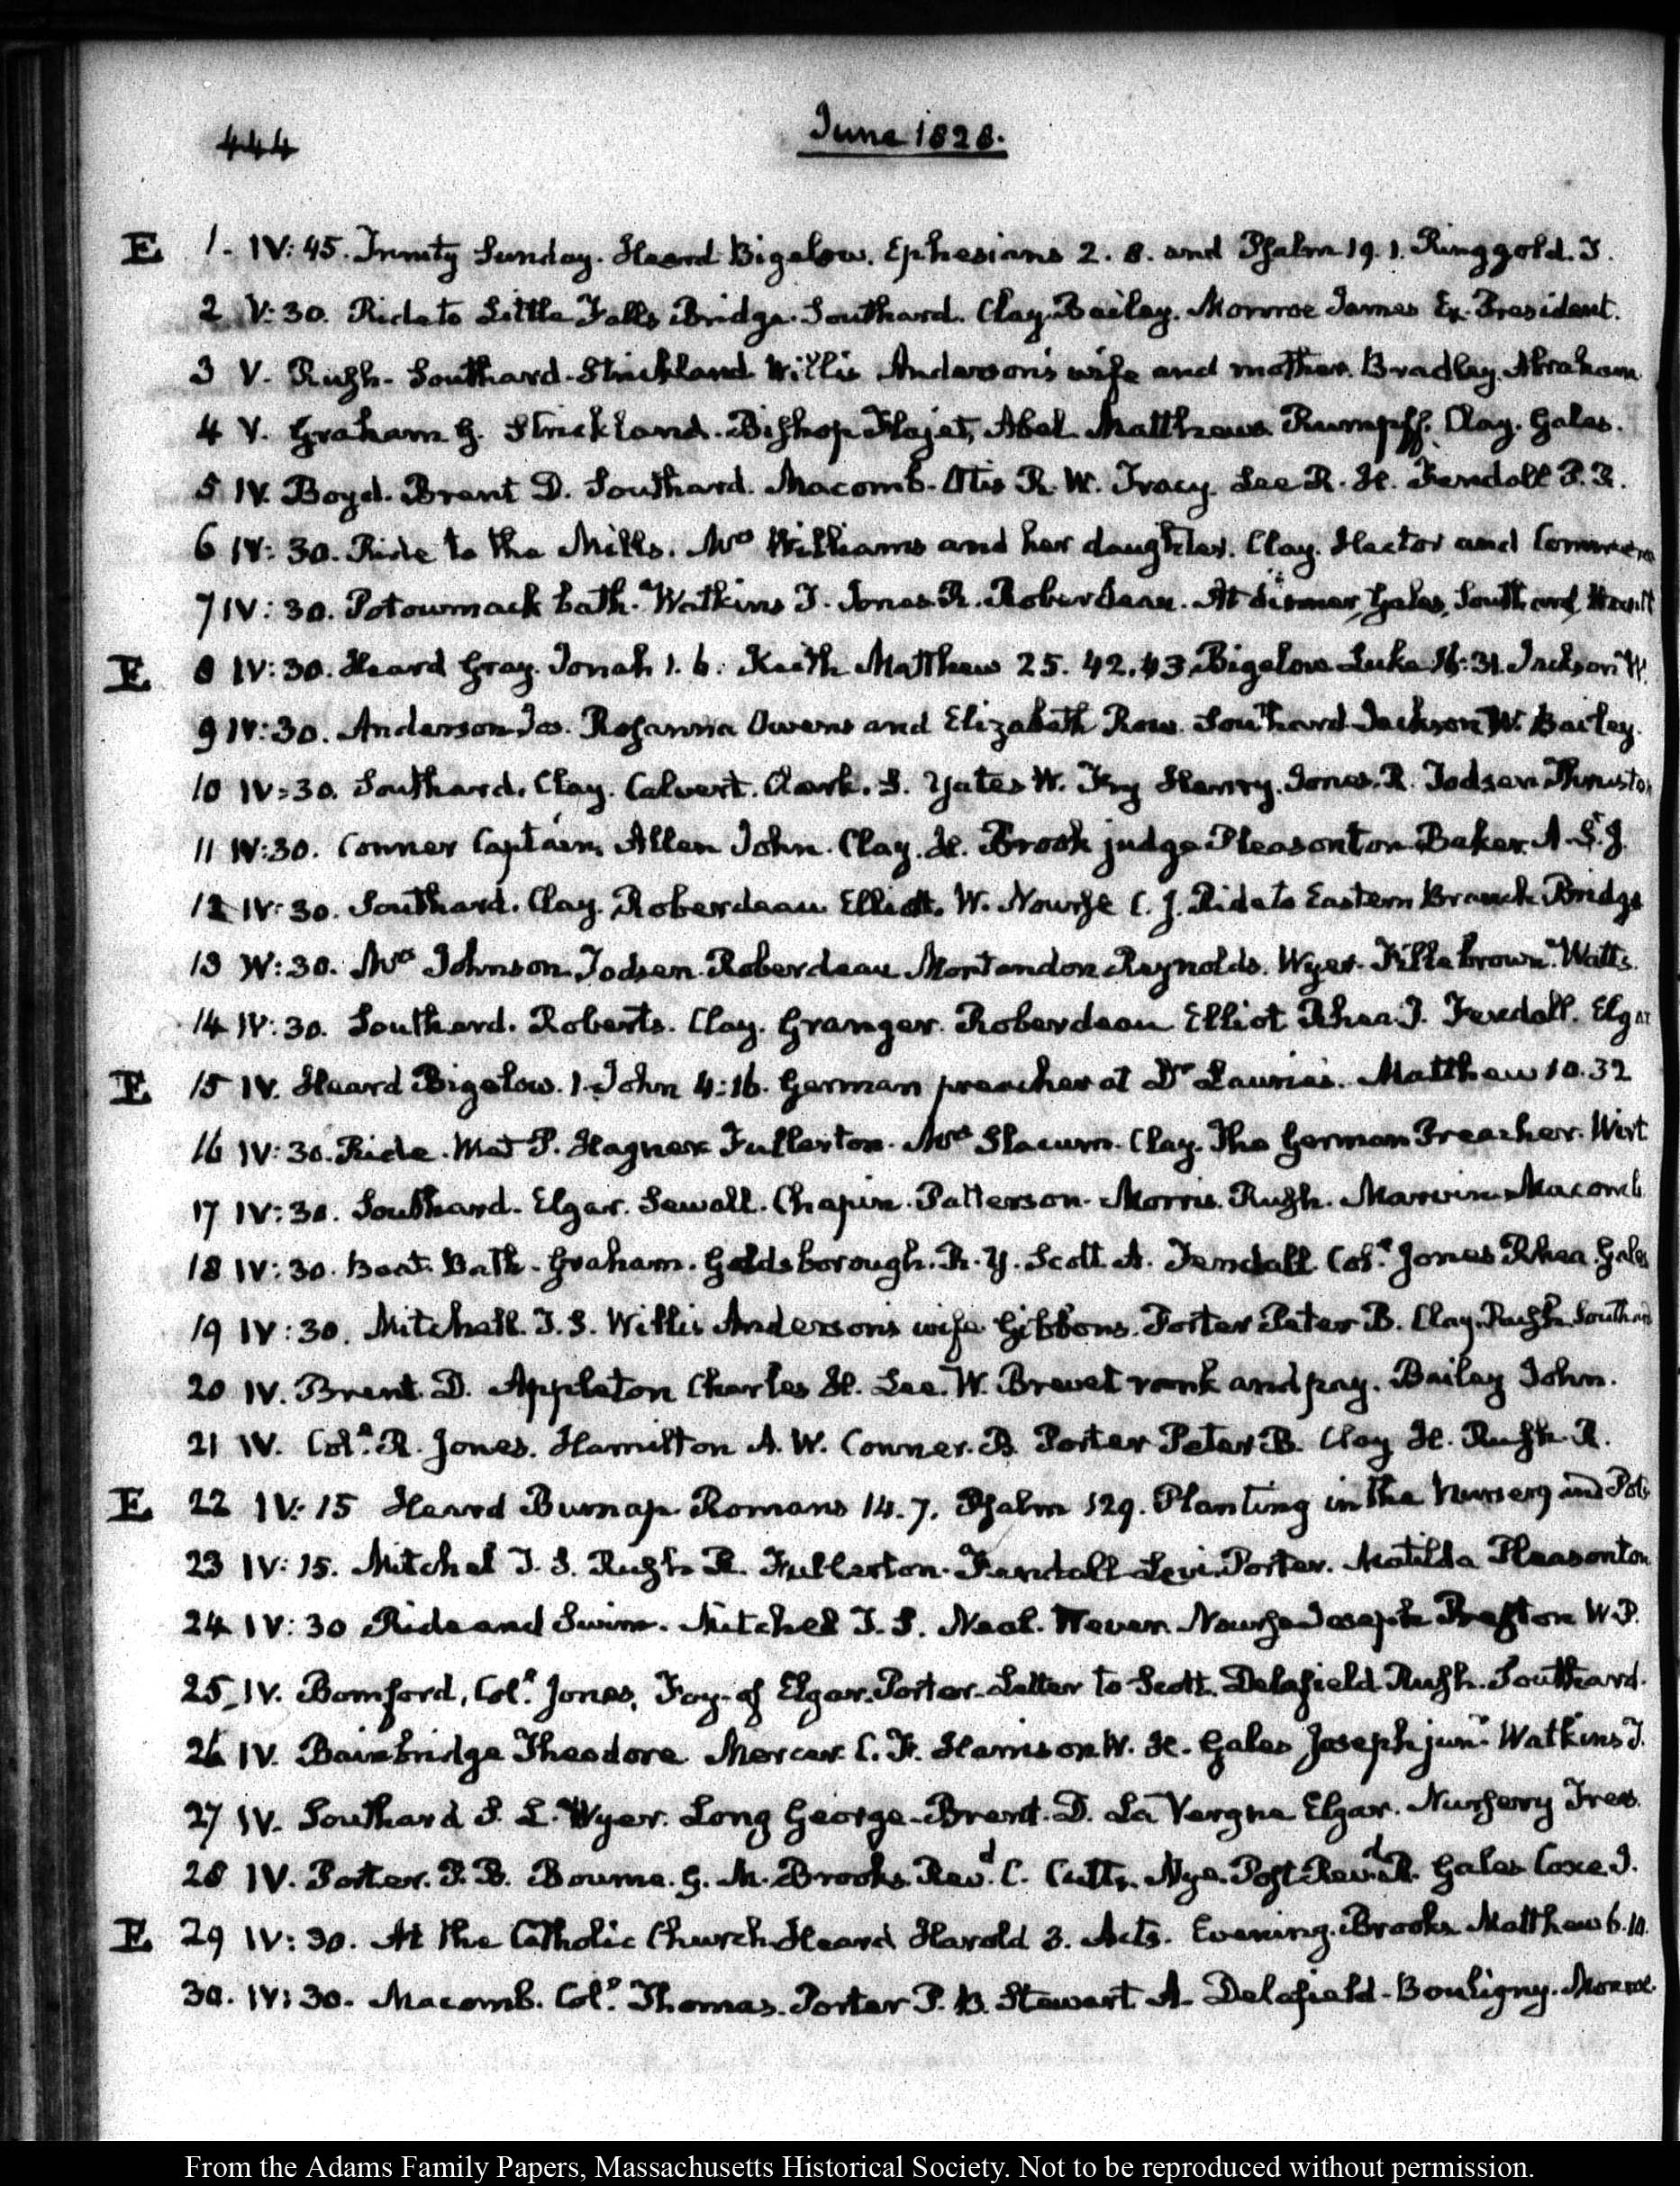 444
June 1828.
E 1. IV:45. Trinity Sunday. Heard Bigelow. Ephesians 2. 8. and Psalm 19. 1. Ringgold. T.
2 V:30. Ride to Little Falls Bridge. Southard. Clay. Bailey. Monroe James Ex-President.
3 V. Rush. Southard. Strickland. Willis Anderson's wife and mother. Bradley. Abraham
4 V. Graham G. Strickland. Bishop Abel. Matthews. Rumpff. Clay. Gales.
5 IV. Boyd. Brent D. Southard. Macomb. Otis R. W. Tracy. Lee R. H. Fendall P. R.
6 IV:30. Ride to the Mills. Mrs Williams and her daughter. Clay. Hector and
7 IV:30. Potowmack bath. Watkins T. Jones R. Roberdeau. At dinner, Gales, Southard,
E 8 IV:30. Heard Gray. Jonah 1. 6. Keith Matthew 25. 42.43. Bigelow Luke 16:31. Jackson W.
9 IV:30. Anderson Jas. Rosanna Owens and Elizabeth Row. Southard. Jackson W. Bailey.
10 IV:30. Southard. Clay. Calvert. Clark. S. Yates W. Henry. Jones. R. Todsen Thruston
11 IV:30. Conner Captain, Allen John. Clay. H. Brook judge Pleasonton. Baker. A. S. J.
12 IV:30. Southard. Clay. Roberdeau. Elliott. W. Nourse C. J. Ride to Eastern Branch Bridge
13 IV:30. Mrs Johnson. Todsen. Roberdeau. Montandon. Reynolds. Wyer. Killebrown. Watts.
14 IV:30. Southard. Roberts. Clay. Granger. Roberdeau Elliot Rhea J. Fendall. Elgar
E 15 IV. Heard Bigelow. 1. John 4:16. German preacher at Dr Laurie's. Matthew 10.32
16 IV:30. Ride. Met P. Hagner. Fullerton. Mrs Slacum. Clay. The German Preacher. Wirt
17 IV:30. Southard. Elgar. Sewall. Chapin. Patterson. Morris. Rush. Marvin. Macomb
18 IV:30. Boat. Bath. Graham. Goldsborough. R. Y. Scott A. Fendall. Coll. Jones. Rhea. Gales
19 IV:30. Mitchell. T. S. Willis Anderson's wife. Gibbons. Porter Peter B. Clay. Rush. Southard
20 IV. Brent. D. Appleton Charles H. Lee. W. Brevet rank and pay. Bailey John.
21 IV. Coll. R. Jones. Hamilton A. W. Conner. D. Porter Peter B. Clay H. Rush. R.
E 22 IV:15 Heard Burnap. Romans 14. 7. Psalm 129. Planting in the Nursery and Pots
23 IV:15. Mitchel T. S. Rush R. Fullerton. Fendall. Levi. Porter. Matilda Pleasonton
24 IV:30 Ride and Swim. Mitchel T. S. Neal. Weaver. Nourse Joseph Preston W. P.
25 IV. Bomford, Coll. Jones, Foy of Elgar. Porter. Letter to Scott. Delafield. Rush. Southard.
26 IV. Bainbridge Theodore. Mercer. C. F. Harrison W. H. Gales Joseph junr. Watkins T.
27 IV. Southard S. L. Wyer. Long George. Brent. D. La Vergne Elgar. Nursery Trees.
28 IV. Porter. P. B. Bourne. G. M. Brooks. Revd. C. Cutts. Nye. Post Revd. R. Gales Coxe. J.
E 29 IV:30. At the Catholic Church. Heard Harold 3. Acts. Evening. Brooks Matthew 6.10.
30. IV:30. Macomb. Coll. Thomas. Porter P. B. Stewart A. Delafield. Bouligny. Monroe.
From the Adams Family Papers, Massachusetts Historical Society. Not to be reproduced without permission.